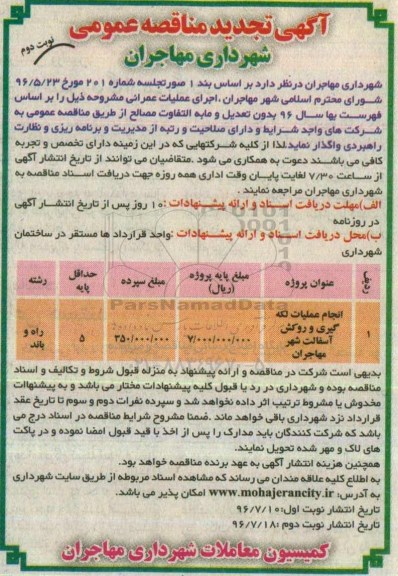 آگهی تجدید مناقصه عمومی
نوبت دوم
شهرداری مهاجران
شهرداری مهاجران درنظر دارد بر اساس بند ۱ صورتجلسه شماره ۲۰۱ مورخ ۹۶/۵/۲۳
شورای محترم اسلامی شهر مهاجران ،اجرای عملیات عمرانی مشروحه ذیل را بر اساس
فهرست بها سال ۹۶ بدون تعدیل و مابه التفاوت مصالح از طریق مناقصه عمومی به
شرکت های واجد شرایط و دارای صلاحیت و رتبه از مدیریت و برنامه ریزی و نظارت
راهبردی واگذار نماید.لذا از کلیه شرکتهایی که در این زمینه دارای تخصص و تجربه
کافی می باشند دعوت به همکاری می شود .متقاضیان می توانند از تاریخ انتشار آگهی
از ساعت ۷/۳۰ لغایت پایان وقت اداری همه روزه جهت دریافت اسناد مناقصه به
شهرداری مهاجران مراجعه نمایند .
الف)مهلت دریافت اسناد و ارائه پیشنهادات :۱۰ روز پس از تاریخ انتشار آگهی
در روزنامه
ب)محل دریافت اسناد و ارائه پیشنهادات :واحد قرارداد ها مستقر در ساختمان
شهرداری
ردیف عنوان پروژه مبلغ پایه پروژه (ریال) مبلغ سپرده حداقل پایه رشته
ParsNamadData
۱ انجام عملیات لکه گیری و روکش آسفالت شهر مهاجران ۷/۰۰۰/۰۰۰/۰۰۰ ۳۵۰/۰۰۰/۰۰۰ ۵ راه و باند
بدیهی است شرکت در مناقصه و ارائه پیشنهاد به منزله قبول شروط و تکالیف و اسناد
مناقصه بوده و شهرداری در رد یا قبول کلیه پیشنهادات مختار می باشد و به پیشنهاات
مخدوش یا مشروط ترتیب اثر داده نخواهد شد و سپرده نفرات دوم و سوم تا تاریخ عقد
قرارداد نزد شهرداری باقی خواهد ماند .ضمنا مشروح شرایط مناقصه در اسناد درج می
باشد که شرکت کنندگان باید مدارک را پس از اخذ با قید قبول امضا نموده و در پاکت
های لاک و مهر شده تحویل نمایند.
همچنین هزینه انتشار آگهی به عهد برنده مناقصه خواهد بود.
به اطلاع کلیه علاقه مندان می رساند که مشاهده اسناد مربوطه از طریق سایت شهرداری
به آدرس: www.mohajerancity.ir امکان پذیر می باشد.
تاریخ انتشار نوبت اول:۹۶/۷/۱۰
تاریخ انتشار نوبت دوم :۹۶/۷/۱۸
کمیسیون معاملات شهرداری مهاجران